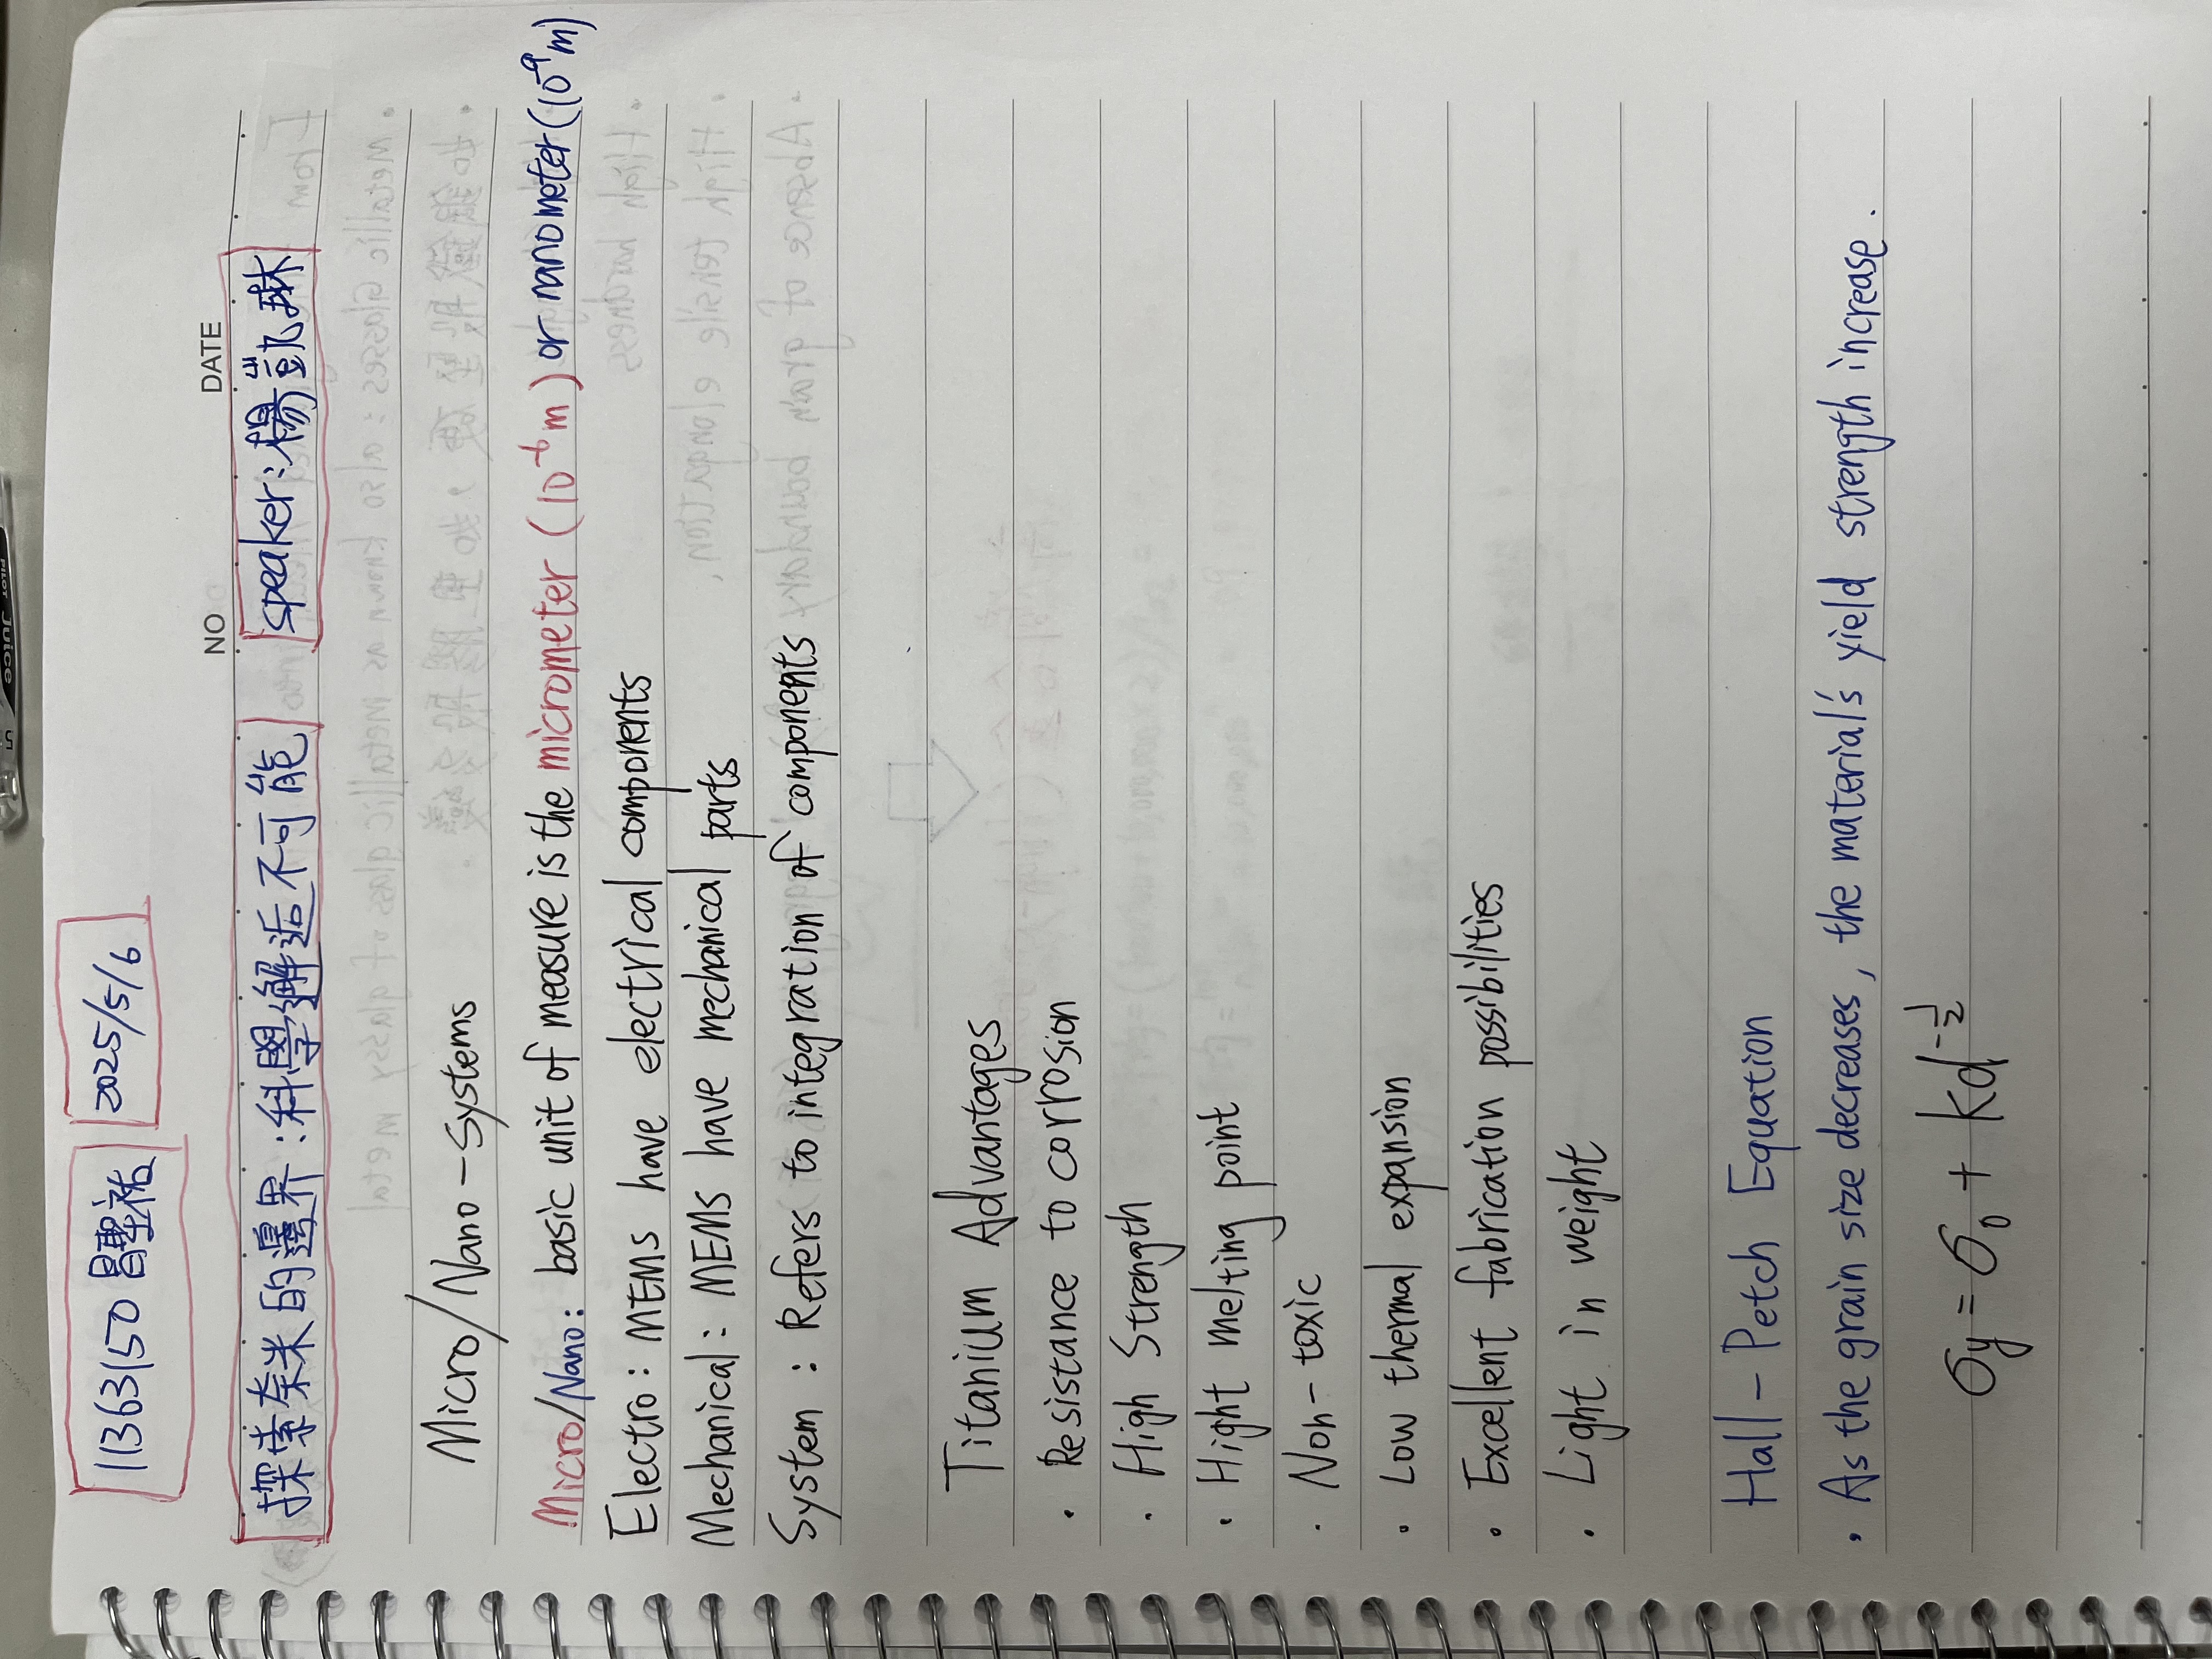 PILOT Juice 5
11363150 冒聖祐 2025/5/6
NO DATE
探索奈米的邊界:科學邂逅不可能 speaker:楊凱琳
Micro/Nano-Systems
Micro/Nano: basic unit of measure is the micrometer (10⁻⁶m) or nanometer (10⁻⁹m)
Electro: MEMS have electrical components
Mechanical: MEMS have mechanical parts
System: Refers to integration of components
Titanium Advantages
· Resistance to corrosion
· High Strength
· Hight melting point
· Non-toxic
· Low thermal expansion
· Excellent fabrication possibilities
· Light in weight
Hall-Petch Equation
· As the grain size decreases, the material's yield strength increase.
σy = σ₀ + kd^-1/2